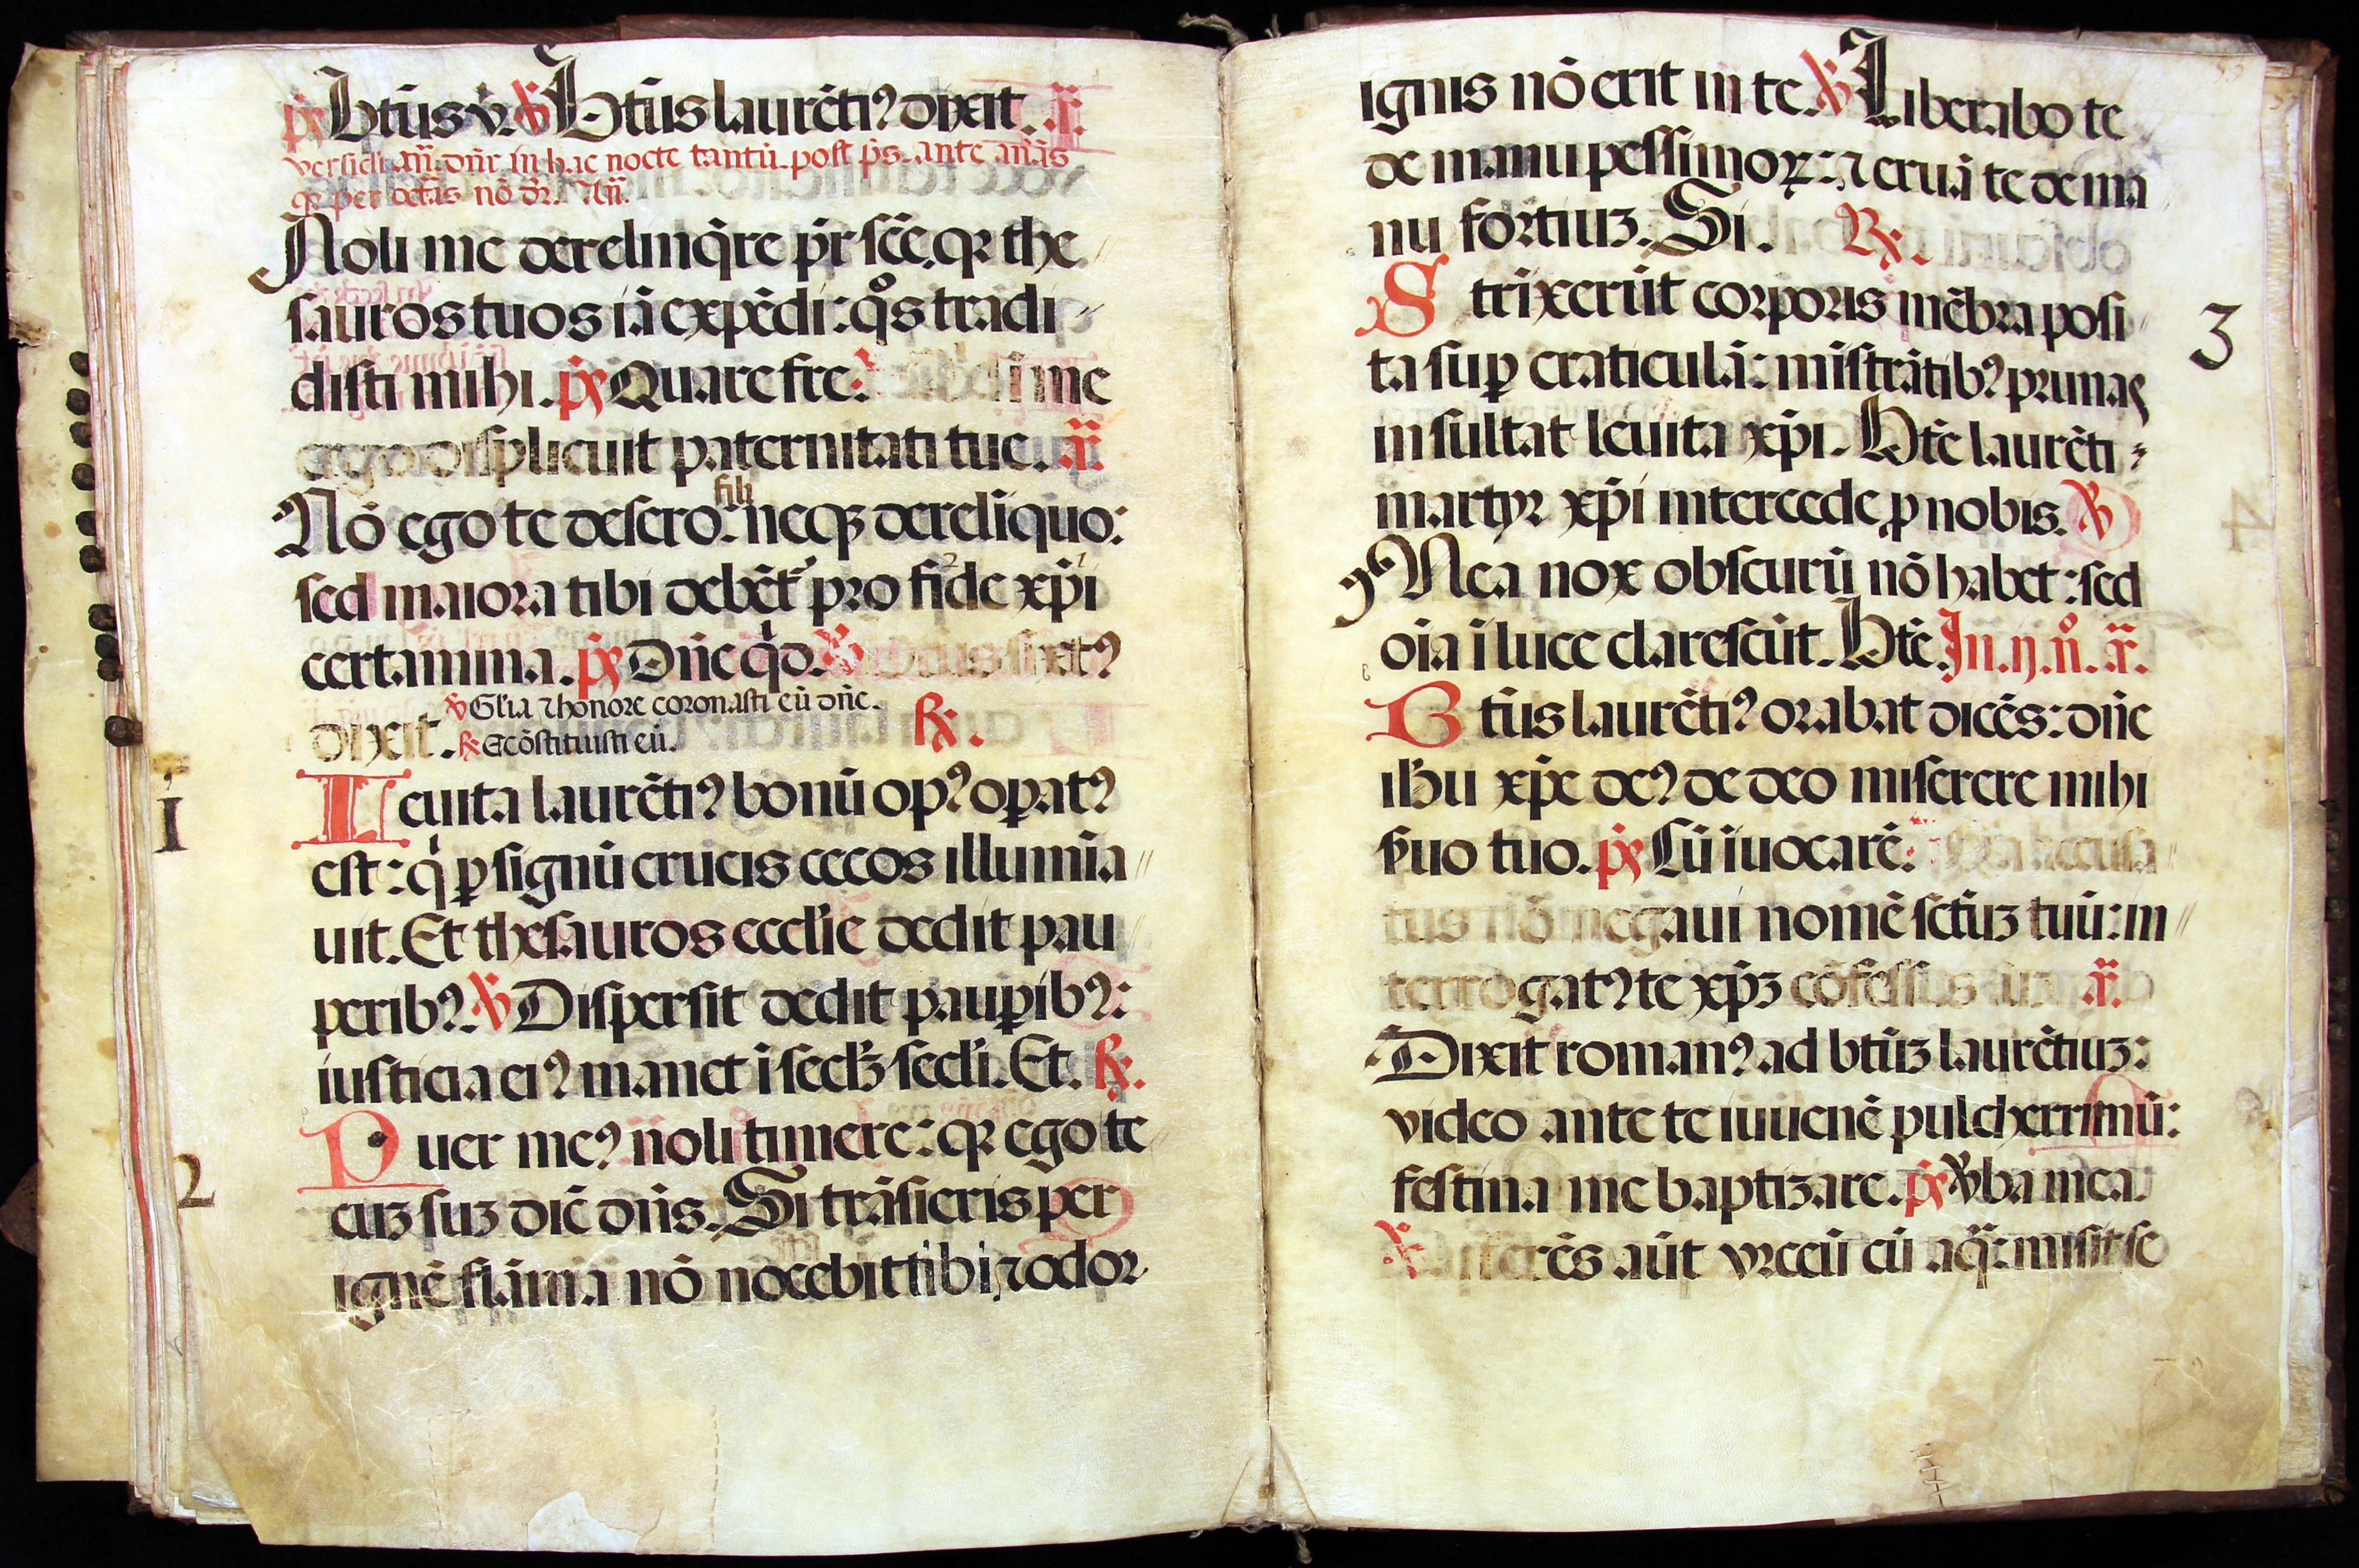 p̄s Btūs v̄. ℣ Btūs laurētiꝰ dixit. ā.
versiculi an̄. dn̄r in hac nocte tantū. post p̄s. ante an̄as
qꝛ per octās nō dr̄.
Noli me derelinq̄re pr̄ sc̄e. qꝛ the
sauros tuos iā expēdi: qͦs tradi
disti mihi. p̄s Quare fre: i me
ergo displicuit paternitati tue. ā.
fili
Nō ego te desero. neqꝫ derelīquo:
sed maiora tibi debēt᷑ pro fide xp̄i
certamina. p̄s Dn̄e qͥd. ℣
℣ Glīa ⁊ honore coronasti eū dn̄e.
dixit. ℟ Et cōstituisti eū. ℟.
1
Leuita laurētiꝰ bonū opꝰ oꝑatꝰ
est: qͥ ꝑ signū crucis cecos illumīa
uit. Et thesauros ecclīe dedit pau
peribꝰ. ℣ Dispersit dedit pauꝑibꝰ:
iusticia eiꝰ manet ī secl̄ꝫ secl̄i. Et. ℟.
Puer meꝰ noli timere: qꝛ ego te
2
cuꝫ suꝫ dic̄ dn̄s. Si trāsieris per
ignē flāma nō nocebit tibi ⁊ odor
ignis nō erit in te. ℣ Liberabo te
de manu pessimoꝝ: ⁊ eruā te de ma
nu fortiuꝫ. Si. ℟.
Strixerūt corporis mēbra posi
3
ta suꝑ craticulā: mīstrātibꝰ prunas
insultat leuita xp̄i. Bt̄e laurēti
martyr xp̄i intercede ꝓ nobis. ℣
4
Mea nox obscurū nō habet: sed
oīa ī luce clarescūt. Bt̄e. In. ij. n̄. ā.
Btūs laurētiꝰ orabat dicēs: dn̄e
ih̄u xp̄e deꝰ de deo miserere mihi
s̄uo tuo. p̄s Cū īuocarē. accusa
tus nō negaui nomē sctūꝫ tuū: in
terrogatꝰ te xp̄ꝫ cōfessus suꝫ ā.
Dixit romanꝰ ad btūꝫ laurētiuꝫ:
video ante te iuuenē pulcherrimū:
festina me baptizare. p̄s V̄ba mea.
℣ erēs aūt vrceū cū aq̄: misit se